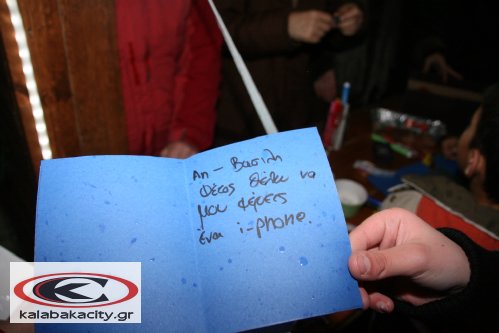 Αη - Βασίλη
Φέτος θέλω να
μου φέρεις
ένα i-phone.
kalabakacity.gr